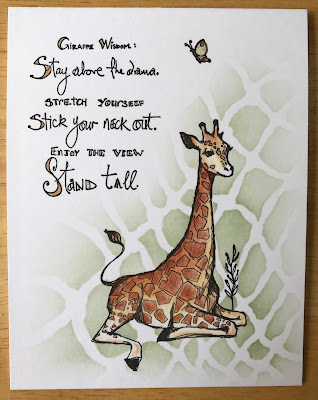 Giraffe Wisdom:
Stay above the drama.
STRETCH YOURSELF
Stick your neck out.
ENJOY THE VIEW
STAND tall.